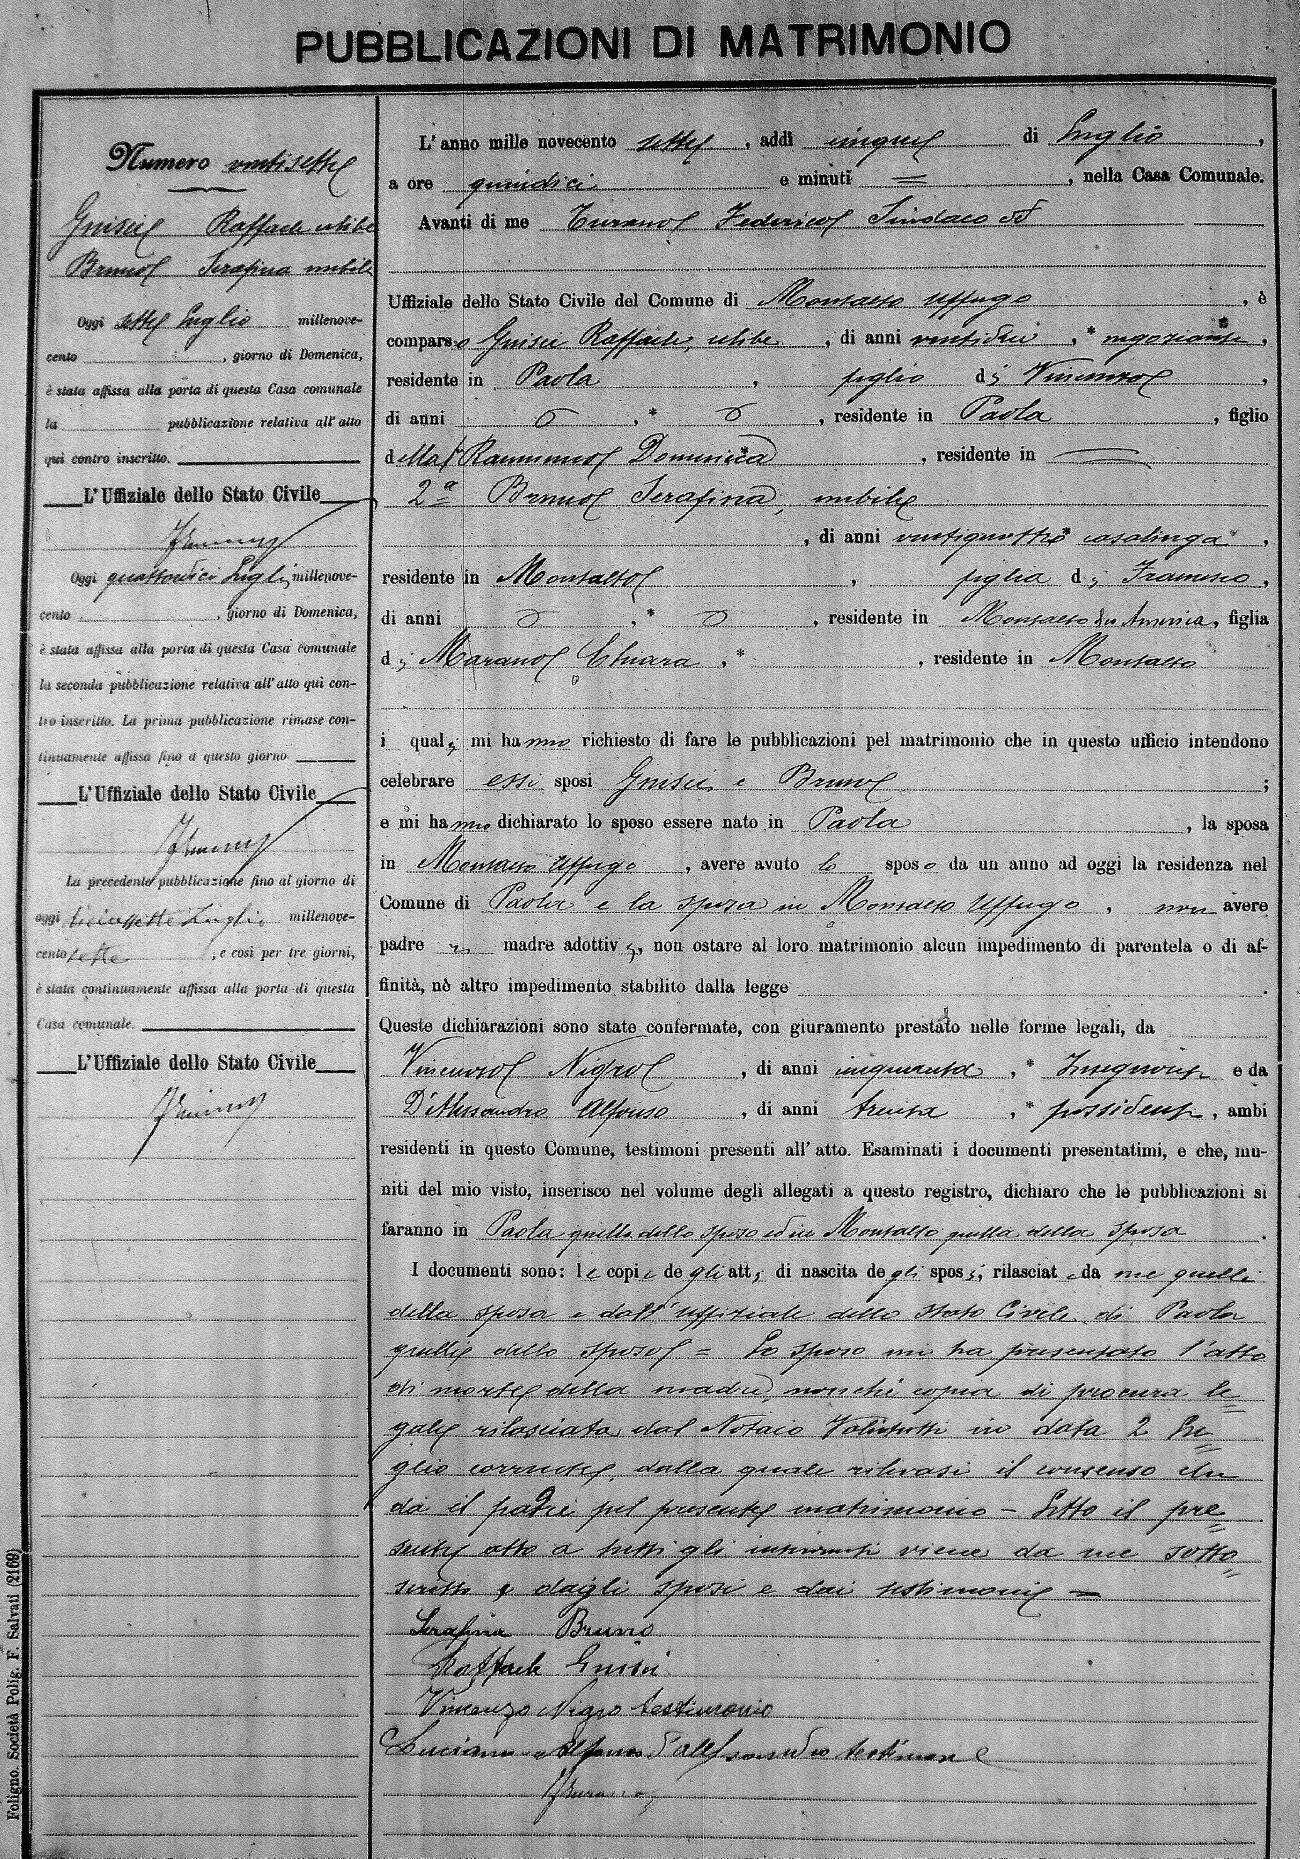 PUBBLICAZIONI DI MATRIMONIO
Numero ventisette
Guisci Raffaele celibe
Bruno Serafina nubile
Oggi sette Luglio millenove-
cento , giorno di Domenica,
è stata affissa alla porta di questa Casa comunale
la pubblicazione relativa all'atto
qui contro inscritto.
L'Uffiziale dello Stato Civile
Oggi quattordici Lugli millenove-
cento , giorno di Domenica,
è stata affissa alla porta di questa Casa comunale
la seconda pubblicazione relativa all'atto qui con-
tro inscritto. La prima pubblicazione rimase con-
tinuamente affissa fino a questo giorno
L'Uffiziale dello Stato Civile
La precedente pubblicazione fino al giorno di
oggi diciassette Luglio millenove-
cento sette , e così per tre giorni,
è stata continuamente affissa alla porta di questa
Casa comunale.
L'Uffiziale dello Stato Civile
Foligno. Società Polig. F. Salvati (2169)
L'anno mille novecento sette , addì cinque di Luglio ,
a ore quindici e minuti = , nella Casa Comunale.
Avanti di me Turano Federico Sindaco ed
Uffiziale dello Stato Civile del Comune di Montalto Uffugo , è
comparso Guisci Raffaele, celibe , di anni ventidue , * negoziante ,
residente in Paola , figlio di Vincenzo ,
di anni , * , residente in Paola , figlio
della f Domenica , residente in
2ª Bruno Serafina, nubile
, di anni ventiquattro * casalinga ,
residente in Montalto , figlia di Francesco ,
di anni , * , residente in Montalto America , figlia
di Marano Chiara , * , residente in Montalto
i quali mi hanno richiesto di fare le pubblicazioni pel matrimonio che in questo ufficio intendono
celebrare essi sposi Guisci e Bruno ;
e mi hanno dichiarato lo sposo essere nato in Paola , la sposa
in Montalto Uffugo , avere avuto lo sposo da un anno ad oggi la residenza nel
Comune di Paola e la sposa in Montalto Uffugo , non avere
padre madre adottivi, non ostare al loro matrimonio alcun impedimento di parentela o di af-
finità, nè altro impedimento stabilito dalla legge .
Queste dichiarazioni sono state confermate, con giuramento prestato nelle forme legali, da
Vincenzo Nigro , di anni cinquanta , * Insegnante e da
D'Alessandro Alfonso , di anni trenta , * possidente , ambi
residenti in questo Comune, testimoni presenti all'atto. Esaminati i documenti presentatimi, e che, mu-
niti del mio visto, inserisco nel volume degli allegati a questo registro, dichiaro che le pubblicazioni si
faranno in Paola quella dello sposo ed in Montalto quella della sposa .
I documenti sono: le copie degli atti di nascita degli sposi, rilasciate da me quelli
della sposa e dall'uffiziale dello Stato Civile di Paola
quelli dello sposo = Lo sposo mi ha presentato l'atto
di morte della madre, nonché copia di procura le=
gale rilasciata dal Notaio Valitutti in data 2 Lu=
glio corrente, dalla quale rilevasi il consenso che
dà il padre pel presente matrimonio - Letto il pre=
sente atto a tutti gli intervenuti viene da me sotto=
scritto, dagli sposi e dai testimoni =
Serafina Bruno
Raffaele Guisci
Vincenzo Nigro testimonio
Luciano Alfonso d'Alessandro testimone
FTurano